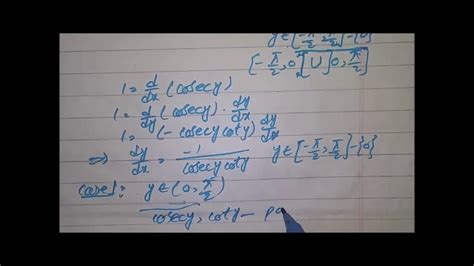 y∈[-π/2, π/2]-{0}
[-π/2, 0[∪]0, π/2]
1 = d/dx (cosecy)
1 = d/dy (cosecy) · dy/dx
1 = (-cosecy coty) dy/dx
⇒ dy/dx = -1/(cosecy coty) y∈[-π/2, π/2]-{0}
Case I: y∈(0, π/2)
cosecy, coty — po